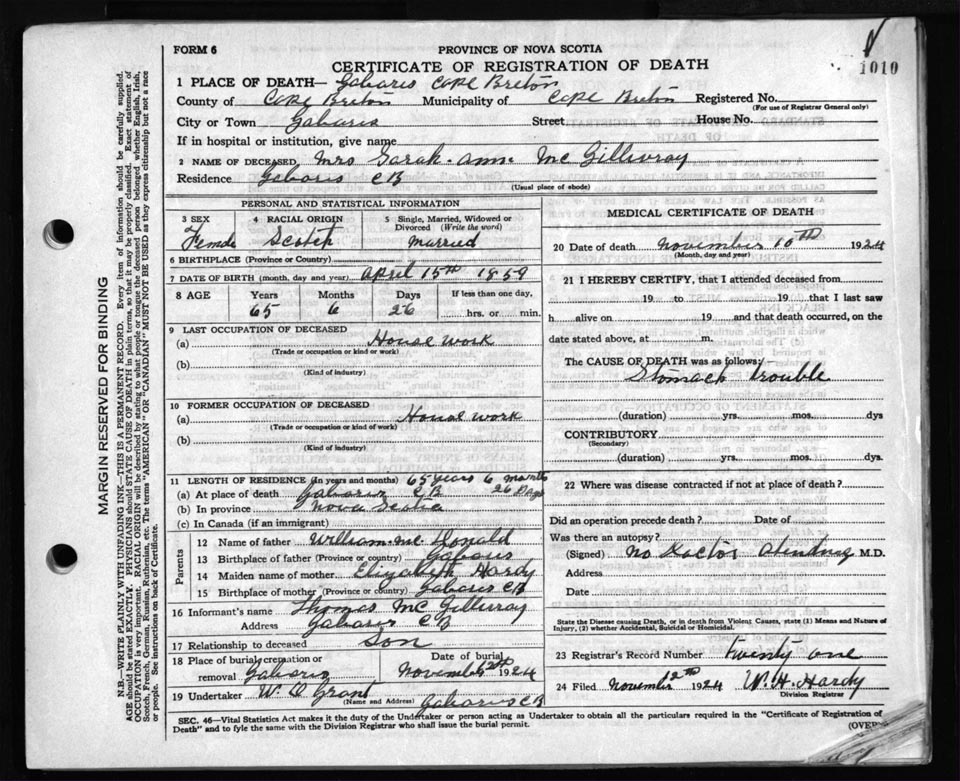 FORM 6
PROVINCE OF NOVA SCOTIA
CERTIFICATE OF REGISTRATION OF DEATH
1010
1 PLACE OF DEATH— Gabarus Cape Breton
County of Cape Breton Municipality of Cape Breton Registered No.
(For use of Registrar General only)
City or Town Gabarus Street House No.
If in hospital or institution, give name
2 NAME OF DECEASED Mrs Sarah Ann Mc Gillivray
Residence Gabarus CB
(Usual place of abode)
PERSONAL AND STATISTICAL INFORMATION
3 SEX 4 RACIAL ORIGIN 5 Single, Married, Widowed or Divorced (Write the word)
Female Scotch Married
6 BIRTHPLACE (Province or Country)
7 DATE OF BIRTH (month, day and year) April 15th 1859
8 AGE Years Months Days If less than one day,
65 6 26 hrs. or min.
9 LAST OCCUPATION OF DECEASED
(a) House work
(Trade or occupation or kind or work)
(b)
(Kind of industry)
10 FORMER OCCUPATION OF DECEASED
(a) House work
(Trade or occupation or kind of work)
(b)
(Kind of industry)
11 LENGTH OF RESIDENCE (in years and months) 65 years 6 months
(a) At place of death Gabarus CB 26 Days
(b) In province Nova Scotia
(c) In Canada (if an immigrant)
Parents
12 Name of father William Mc Donald
13 Birthplace of father (Province or country) Gabarus
14 Maiden name of mother Elizabeth Hardy
15 Birthplace of mother (Province or country) Gabarus CB
16 Informant's name Thomas Mc Gillivray
Address Gabarus CB
17 Relationship to deceased Son
18 Place of burial, cremation or removal Gabarus Date of burial November 12th 1924
19 Undertaker W. O Grant
(Name and Address) Gabarus CB
MEDICAL CERTIFICATE OF DEATH
20 Date of death November 10TH 1924
(Month, day and year)
21 I HEREBY CERTIFY, that I attended deceased from
19 to 19 that I last saw
h alive on 19 and that death occurred, on the
date stated above, at m.
The CAUSE OF DEATH was as follows:—
Stomach trouble
(duration) yrs. mos. dys
CONTRIBUTORY
(Secondary)
(duration) yrs. mos. dys.
22 Where was disease contracted if not at place of death?
Did an operation precede death? Date of
Was there an autopsy?
(Signed) No Doctor Atending M.D.
Address
Date
State the Disease causing Death, or in death from Violent Causes, state (1) Means and Nature of Injury, (2) whether Accidental, Suicidal or Homicidal.
23 Registrar's Record Number twenty one
24 Filed November 12TH 1924 W. H. Hardy
Division Registrar
SEC. 46—Vital Statistics Act makes it the duty of the Undertaker or person acting as Undertaker to obtain all the particulars required in the "Certificate of Registration of
Death" and to fyle the same with the Division Registrar who shall issue the burial permit. (OVER)
MARGIN RESERVED FOR BINDING
N.B.—WRITE PLAINLY WITH UNFADING INK—THIS IS A PERMANENT RECORD. Every item of information should be carefully supplied.
AGE should be stated EXACTLY. PHYSICIANS should STATE CAUSE OF DEATH in plain terms, so that it may be properly classified. Exact statement of
OCCUPATION is very important. RACIAL ORIGIN will be described by stating to what people or tongue the deceased person belonged whether English, Irish,
Scotch, French, German, Russian, Ruthenian, etc. The terms "AMERICAN" OR "CANADIAN" MUST NOT BE USED as they express citizenship but not a race
or people. See instructions on back of Certificate.